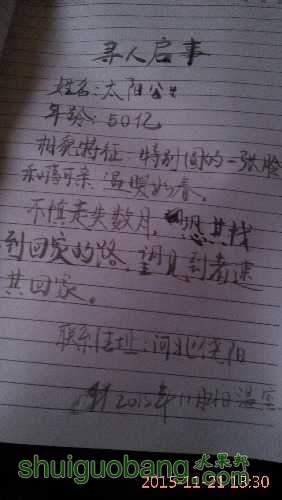 寻人启事
姓名:太阳公公
年龄:50亿
相貌特征:特别圆的一张脸
和蔼可亲 温暖如春。
不慎走失数月,恐其找
到回家的路,望见到者速
其回家。
联系住址:河北
2015年11月
水果邦
shuiguobang.com
2015-11-21 15:30